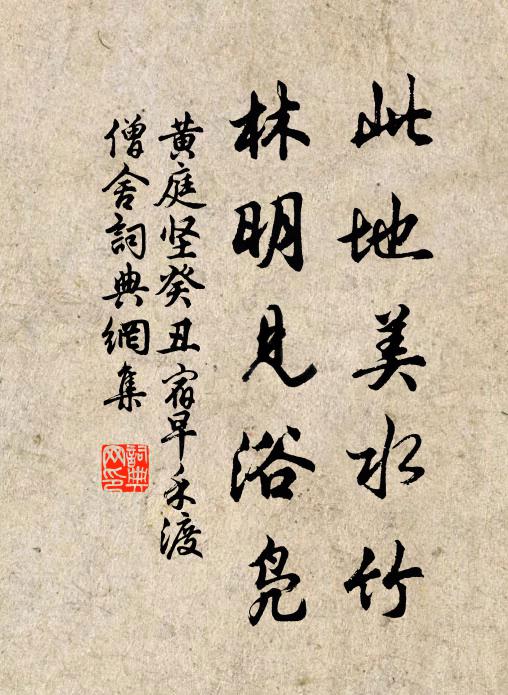 此地美水竹
林明見浴鳧
黄庭坚癸丑宿早禾渡
僧舍詞典網集
詞典网印